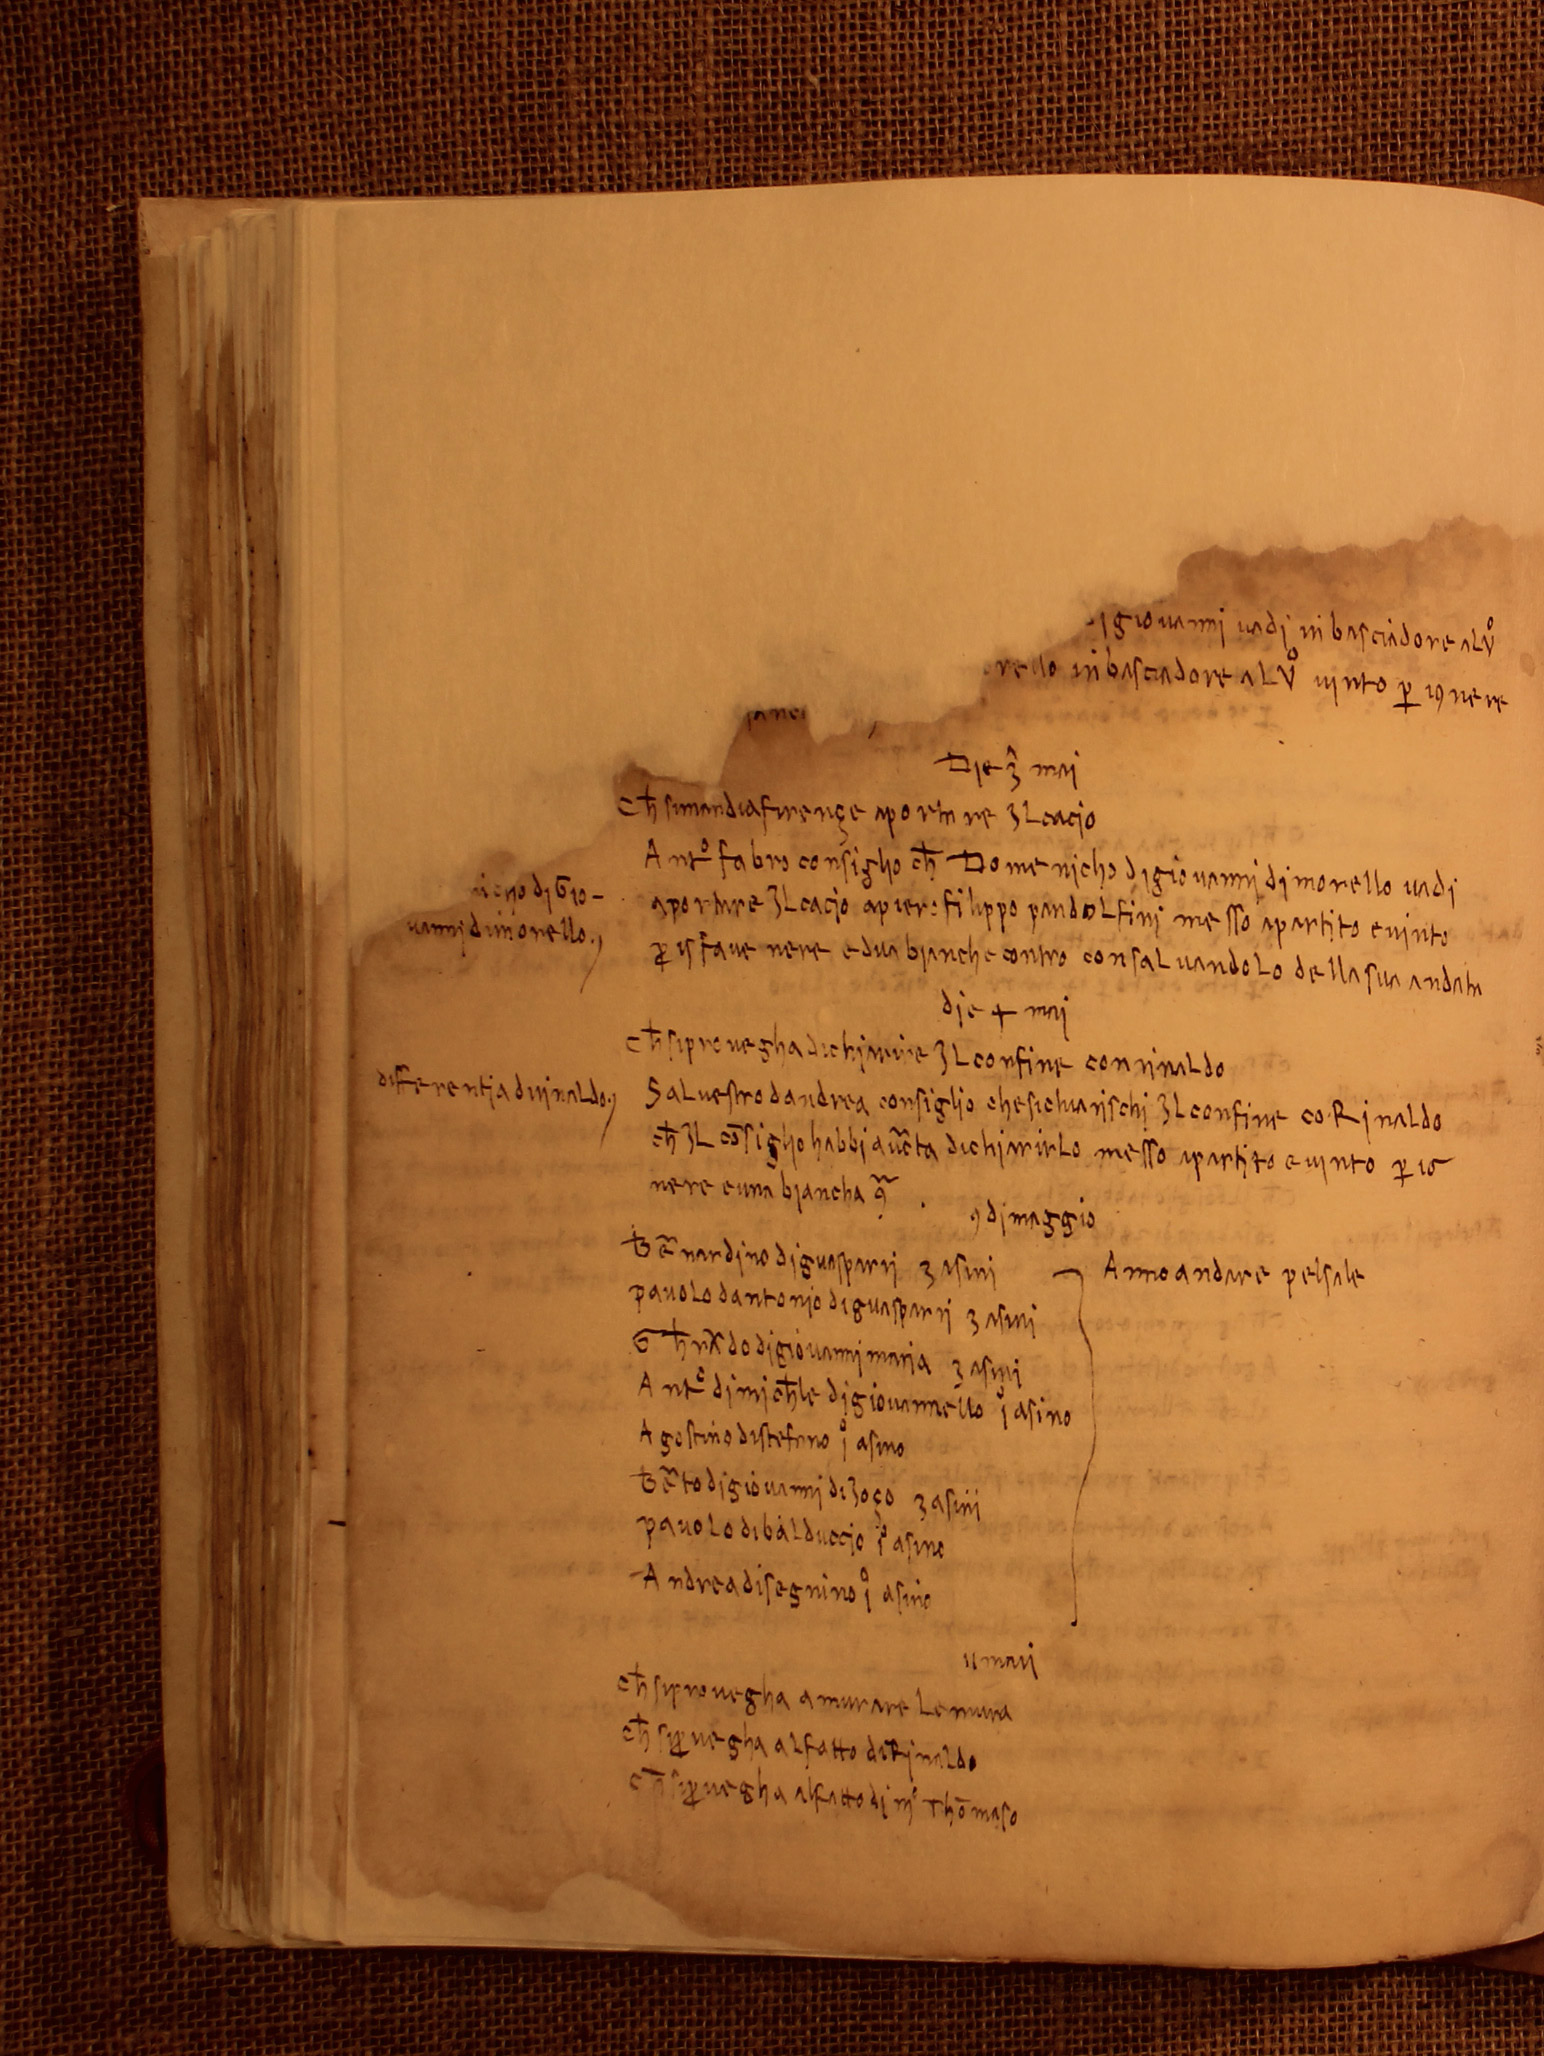 igiovanni vadi inbasciadore alvº
rello inbasciadore a Lvº vinto p 19 nere
Die 3 mai
ch simandiafirençe aportare ZLcacio
Antº fabro consiglio ch Domenicho digiovanni dimorello vadi
aportare ZLcacio apiero filippo pandolfini messo apartito evinto
p 15 fave nere edua bianche contro consalvandolo dellasua andata
nicho di Gio-
vannj dimorello
die 4 mai
ch siprovegha dichiarire ZLconfine conrinaldo
differentia dirinaldo
Salvestro dandrea consiglio chesichiarischi ZLconfine co Rinaldo
ch ZL cōsiglio habbi avcta dichiarirlo messo apartito evinto p 16
nere euna biancha
9 dimaggio
Bēnardino diguasparri 3 asini
Anno andare pelsale
pavolo dantonio diguasparri 3 asini
Ghrardo digiovannimaria 3 asini
Antº dimichle digiovannello jº asino
Agostino distefano jº asino
Bēto digiovanni di Zoço 3 asini
pavolo dibalduccio jº asino
Andrea disegnino jº asino
11 maii
ch siprovegha amurare Lemura
ch sipvegha alfatto diRinaldo
ch sipvegha alfatto di mº Thōmaso